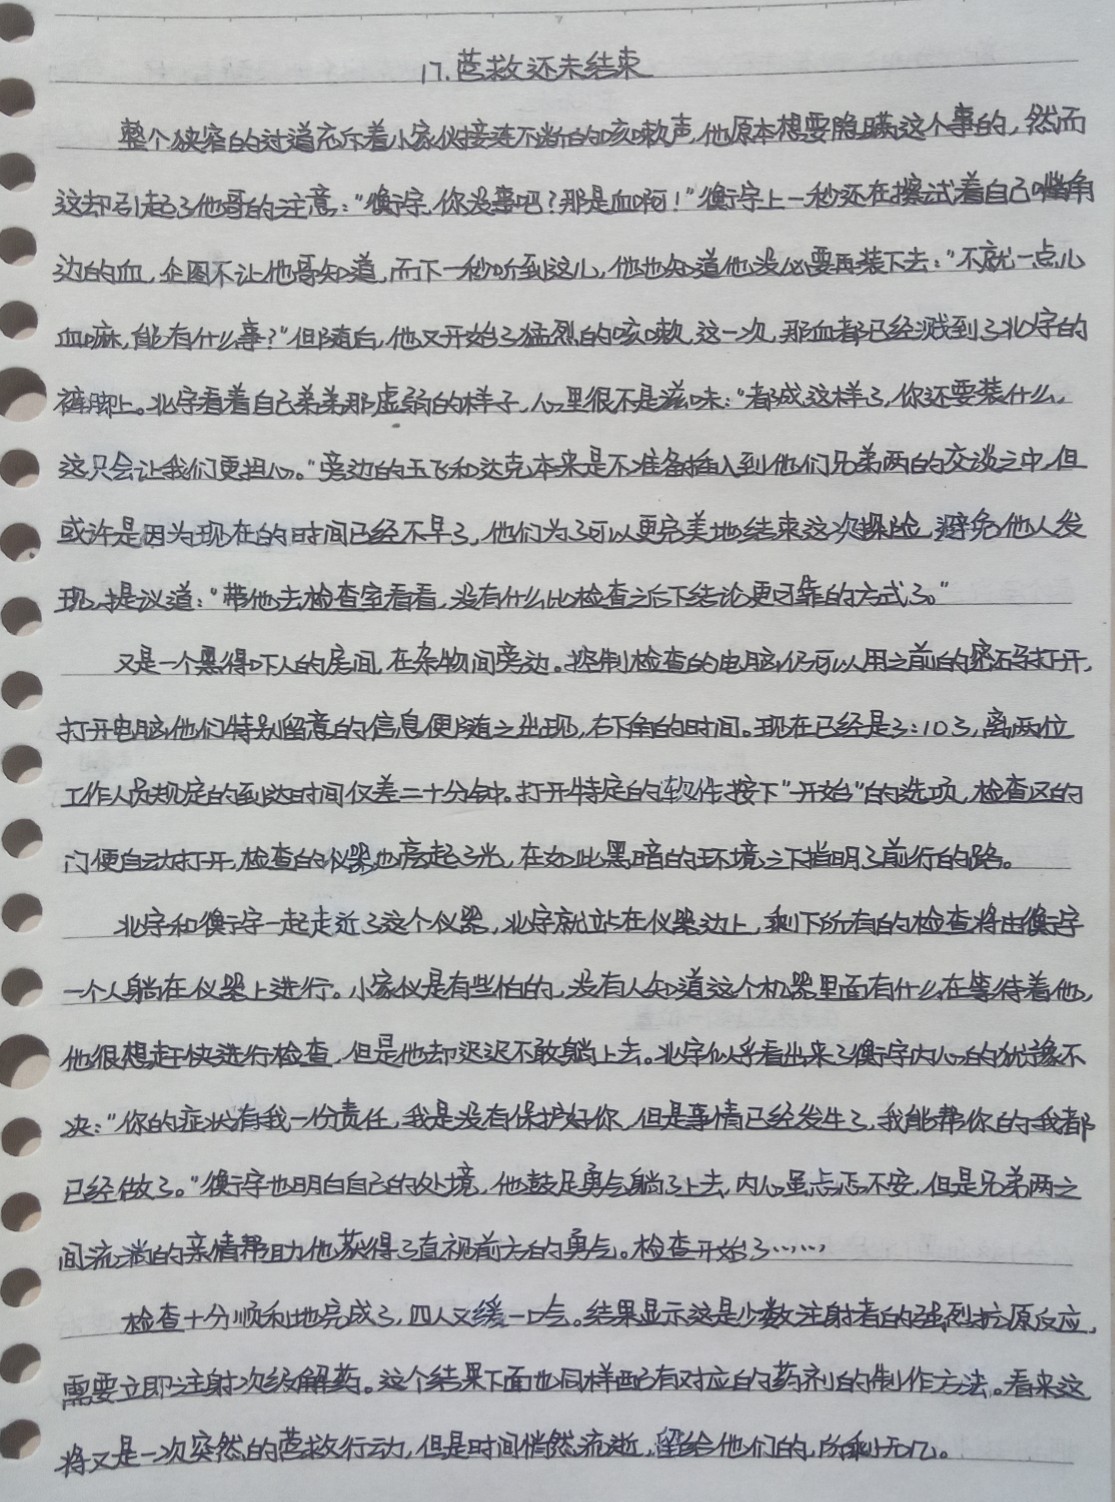 17.营救还未结束
整个狭窄的过道充斥着小家伙接连不断的咳嗽声,他原本想要隐瞒这个事的,然而
这却引起了他哥的注意:“衡宇,你没事吧?那是血啊!”衡宇上一秒还在擦试着自己嘴角
边的血,企图不让他哥知道,而下一秒听到这儿,他也知道他没必要再装下去:“不就一点儿
血嘛,能有什么事?”但随后,他又开始了猛烈的咳嗽,这一次,那血都已经溅到了北宇的
裤脚上。北宇看着自己弟弟那虚弱的样子,心里很不是滋味:“都成这样了,你还要装什么,
这只会让我们更担心。”旁边的五飞和达克本来是不准备插入到他们兄弟两的交谈之中,但
或许是因为现在的时间已经不早了,他们为了可以更完美地结束这次探险,避免他人发
现,提议道:“带他去检查室看看,没有什么比检查之后下结论更可靠的方式了。”
又是一个黑得吓人的房间,在杂物间旁边。控制检查的电脑仍可以用之前的密码打开,
打开电脑,他们特别留意的信息便随之出现,右下角的时间。现在已经是3:10了,离两位
工作人员规定的到达时间仅差二十分钟。打开特定的软件,按下“开始”的选项,检查区的
门便自动打开,检查的仪器也亮起了光,在如此黑暗的环境之下指明了前行的路。
北宇和衡宇一起走近了这个仪器,北宇就站在仪器边上,剩下所有的检查将由衡宇
一个人躺在仪器上进行。小家伙是有些怕的,没有人知道这个机器里面有什么在等待着他,
他很想赶快进行检查,但是他却迟迟不敢躺上去。北宇似乎看出来了衡宇内心的犹豫不
决:“你的症状有我一份责任,我是没有保护好你,但是事情已经发生了,我能帮你的我都
已经做了。”衡宇也明白自己的处境,他鼓足勇气躺了上去,内心虽忐忑不安,但是兄弟两之
间流淌的亲情帮助他获得了直视前方的勇气。检查开始了……
检查十分顺利地完成了,四人又缓一口气。结果显示这是少数注射者的强烈抗原反应,
需要立即注射次级解药。这个结果下面也同样配有对应的药剂的制作方法。看来这
将又是一次突然的营救行动,但是时间悄然流逝,留给他们的,所剩无几。